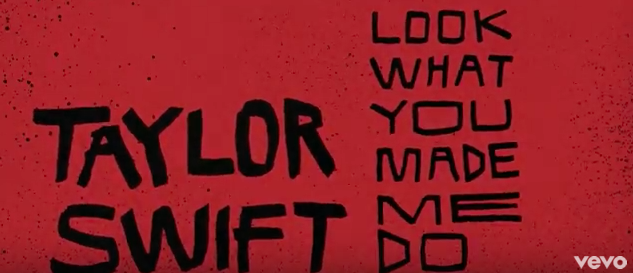 TAYLOR
SWIFT
LOOK
WHAT
YOU
MADE
ME
DO
vevo